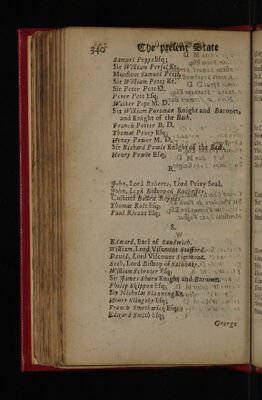 340 The present State
Samuel Pepys Esq;
Sir William Persal Kt.
Monsieur Samuel Petit,
Sir William Petty Kt.
Sir Peter Pett Kt.
Peter Pett Esq;
Walter Pope M. D.
Sir William Portman Knight and Baronet,
and Knight of the Bath.
Francis Potter B. D.
Thomas Povey Esq;
Henry Power M. D.
Sir Richard Powle Knight of the Bath.
Henry Powle Esq;
R.
John, Lord Roberts, Lord Privy Seal.
John, Lord Bishop of Rochester.
Thomas Rolt Esq;
Paul Ricaut Esq;
S.
Edward, Earl of Sandwich.
William, Lord Viscount Stafford.
David, Lord Viscount Stermont.
Seth, Lord Bishop of Salisbury.
William Schroter Esq;
Sir James Shaen Knight and Baronet.
Philip Skippon Esq;
Sir Nicholas Slanning Kt.
Henry Slingsby Esq;
Francis Smethwick Esq;
Edward Smith Esq;
George